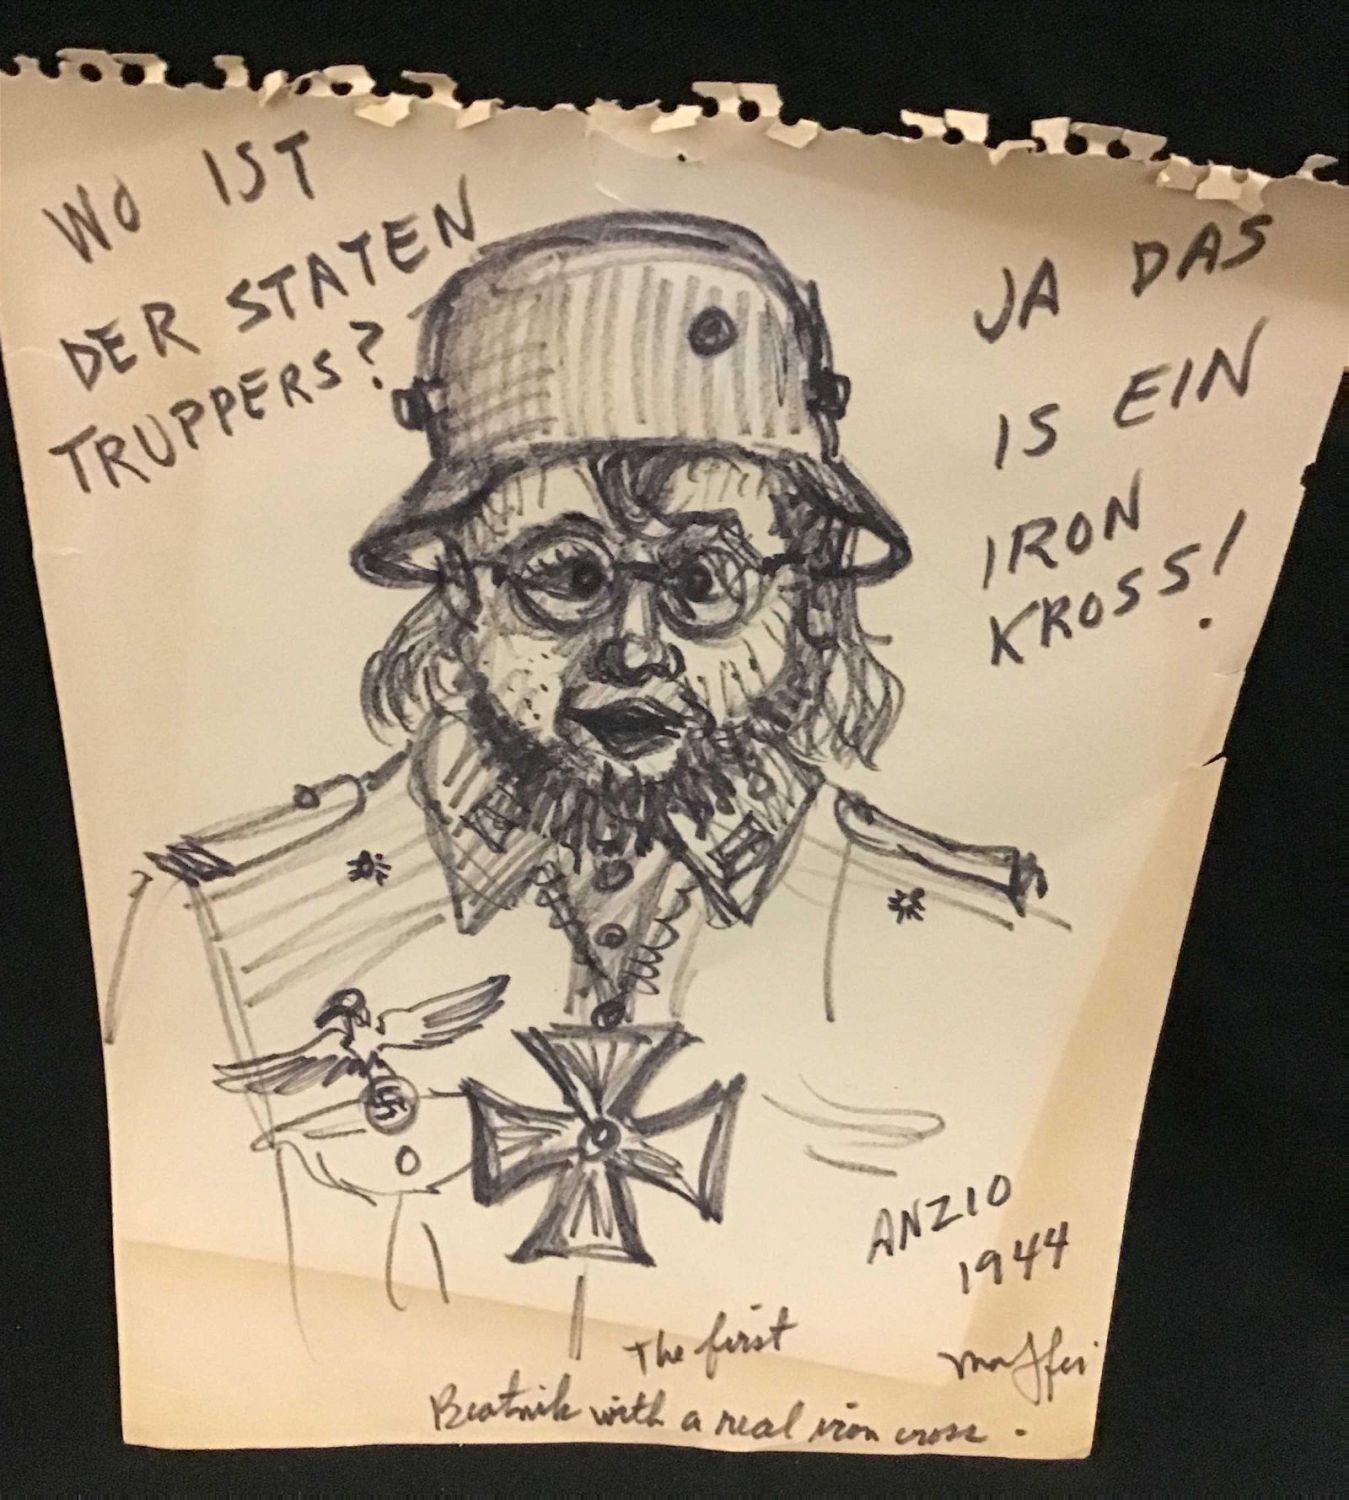 WO IST
DER STATEN
TRUPPERS?
JA DAS
IS EIN
IRON
KROSS!
ANZIO
1944
The first
Beatnik with a real iron cross.
Maffei